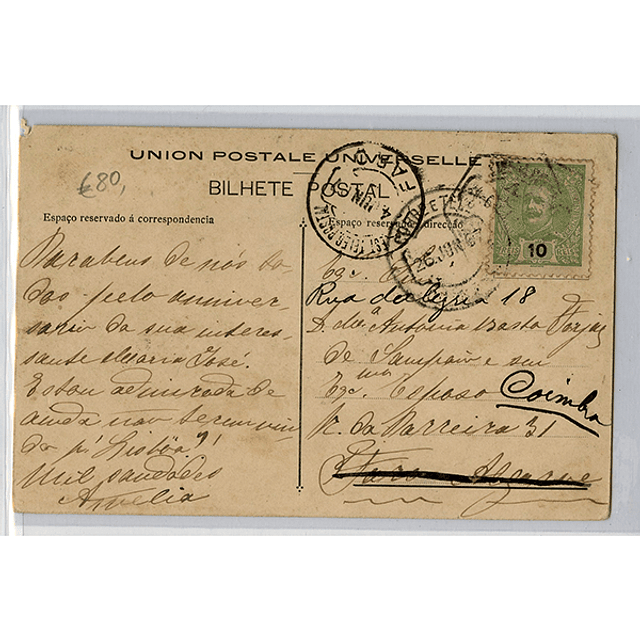 €80,
UNION POSTALE UNIVERSELLE
BILHETE POSTAL
Espaço reservado á correspondencia
Espaço reservado direcção
FARO
4 JUN
26 JUN
10
Parabens de nós to-
dos pelo anniver-
sario da sua interes-
sante Maria José.
Estou admirada de
ainda não terem vin-
do p' Lisboa?!
Mil saudades
Amelia
Rua da Alegria 18
D. Antonia Basto Forjaz
de Sampaio e seu
Esposo Coimbra
R. da Barreira 31
Faro Algarve